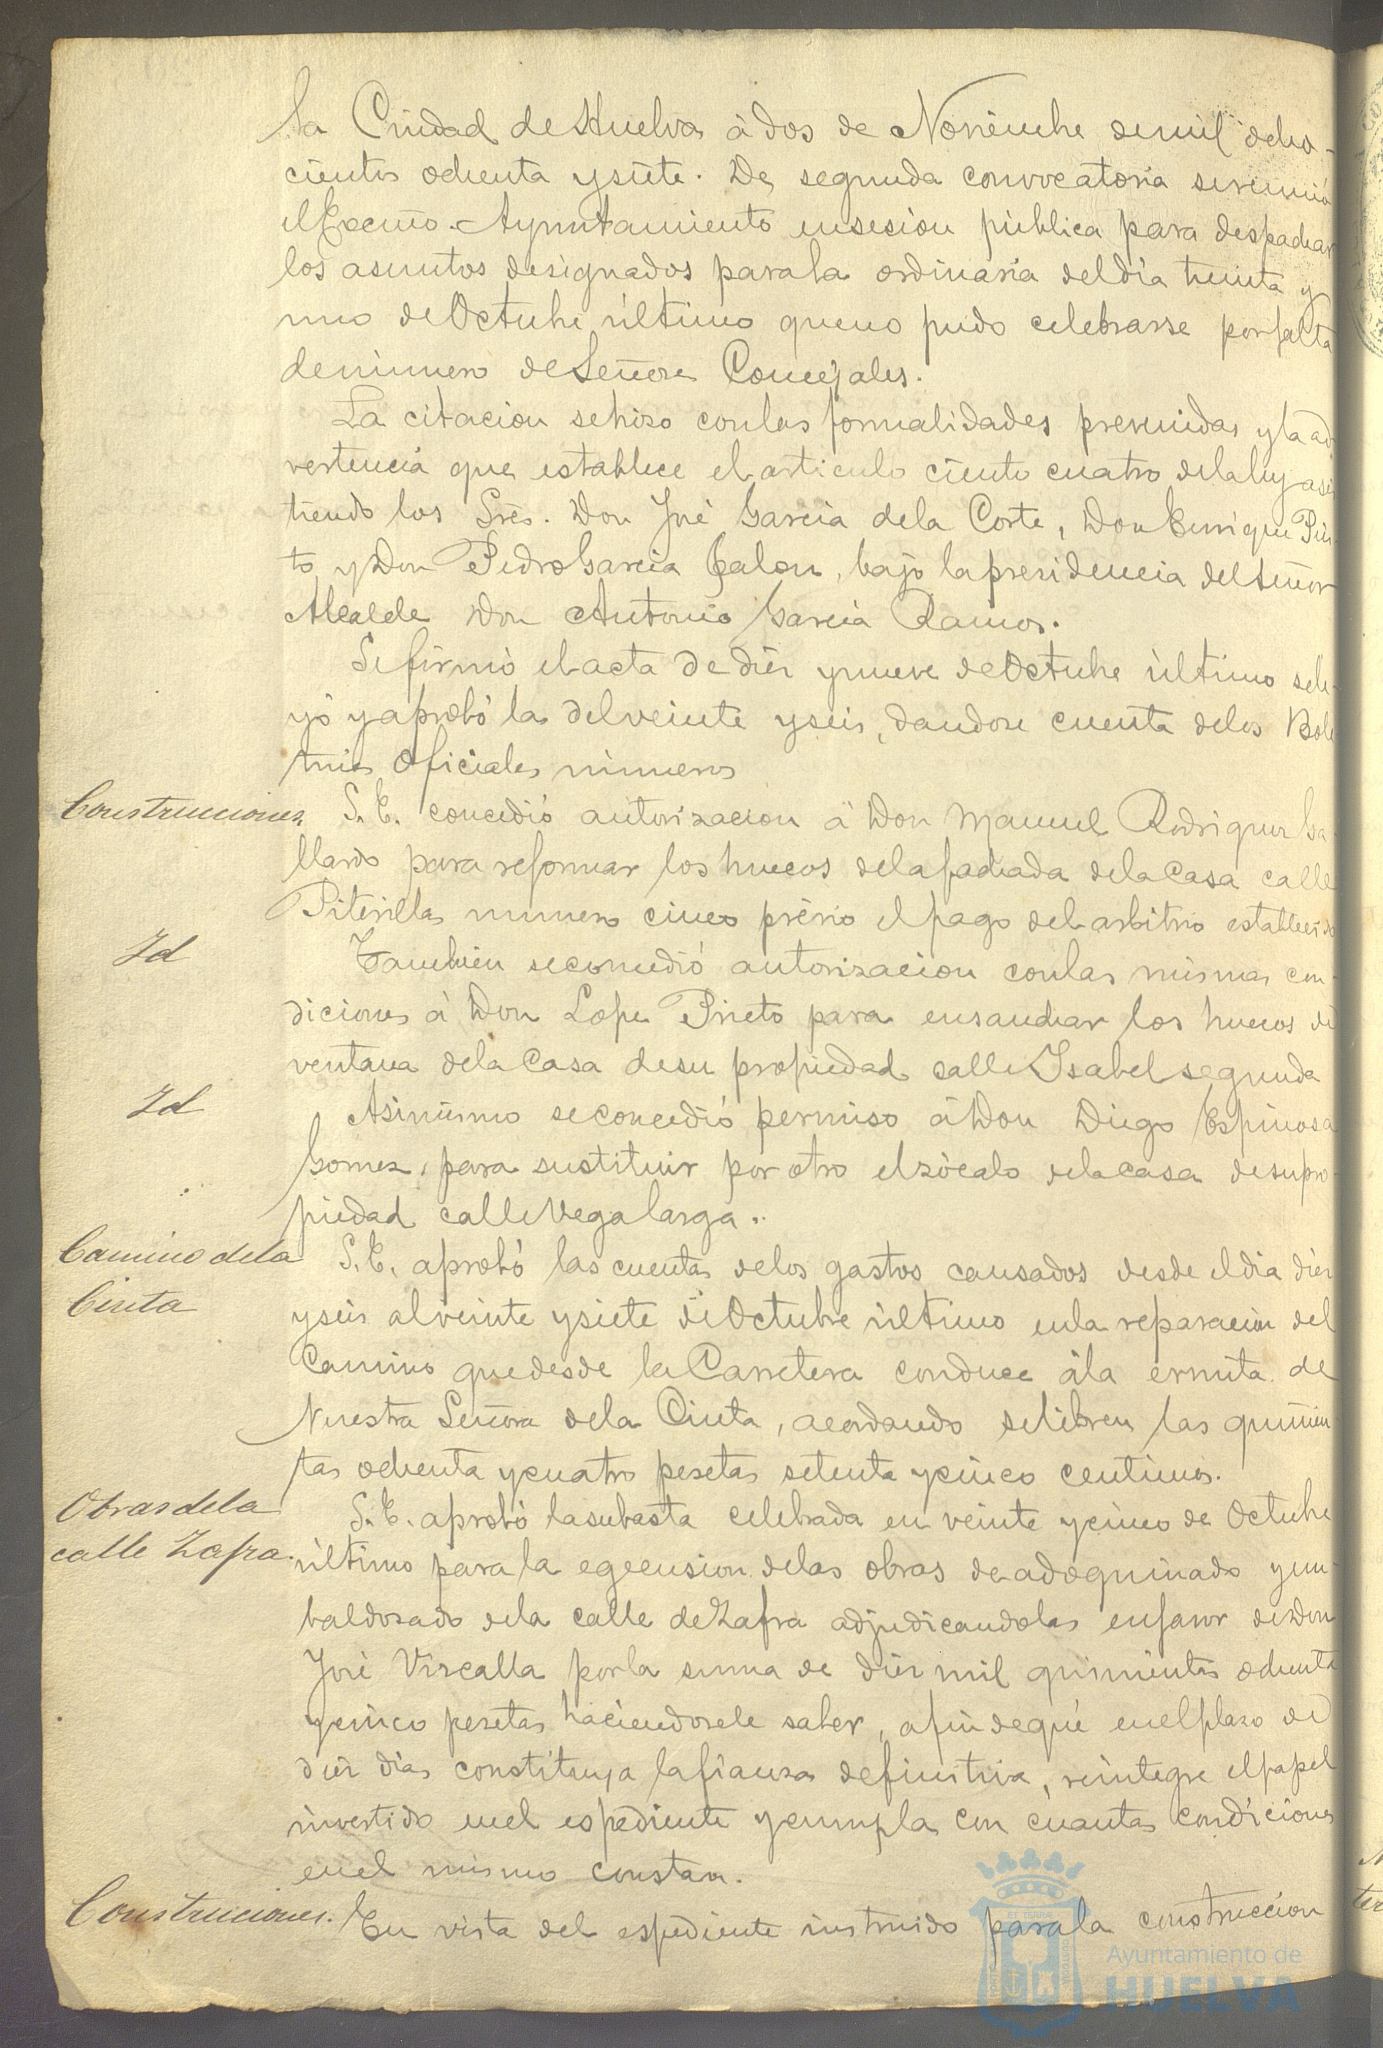 la Ciudad de Huelva á dos de Noviembre de mil ocho-
cientos ochenta y siete. De segunda convocatoria se reunió
el Excmo. Ayuntamiento en sesion pública para despachar
los asuntos designados para la ordinaria del dia treinta y
uno de Octubre último que no pudo celebrarse por falta
de número de Señores Concejales.
La citacion se hizo con las formalidades prevenidas y la ad
vertencia que establece el articulo ciento cuatro de la ley asis
tiendo los Sres. Don José Garcia de la Corte, Don Enrique Pin
to y Don Pedro Garcia Jalon, bajo la presidencia del Señor
Alcalde Don Antonio Garcia Ramos.
Se firmó el acta de diez y nueve de Octubre último se le-
yó y aprobó la del veinte y seis, dandose cuenta de los Bole
tines Oficiales números
Construcciones. S. E. concedió autorizacion á Don Manuel Rodriguez Ga
llardo para reformar los huecos de la fachada de la Casa calle
Piterilla número cinco prévio el pago del arbitrio establecido
Id Tambien se concedió autorizacion con las mismas con-
diciones á Don Lope Prieto para ensanchar los huecos de
ventana de la Casa de su propiedad calle Isabel segunda
Id Asimismo se concedió permiso á Don Diego Espinosa
Gomez, para sustituir por otro el zócalo de la casa de su pro-
piedad calle Vega larga.
Camino de la S. E. aprobó las cuentas de los gastos causados desde el dia diez
Cinta y seis al veinte y siete de Octubre último en la reparacion del
Camino que desde la Carretera conduce á la ermita de
Nuestra Señora de la Cinta, acordando se libren las quinien-
tas ochenta y cuatro pesetas setenta y cinco centimos.
Obras de la S. E. aprobó la subasta celebrada en veinte y cinco de Octubre
calle Zafra. último para la egecusion de las obras de adoquinado y em-
baldosado de la calle de Zafra adjudicandolas en favor de Don
José Vizcalla por la suma de diez mil quinientas ochenta
y cinco pesetas haciendosele saber, a fin de qué en el plazo de
diez dias constituya la fianza definitiva, reintegre el papel
invertido en el espediente y cumpla con cuantas condiciones
en el mismo constan.
Construcciones. En vista del espediente instruido para la construccion
Ayuntamiento de
HUELVA